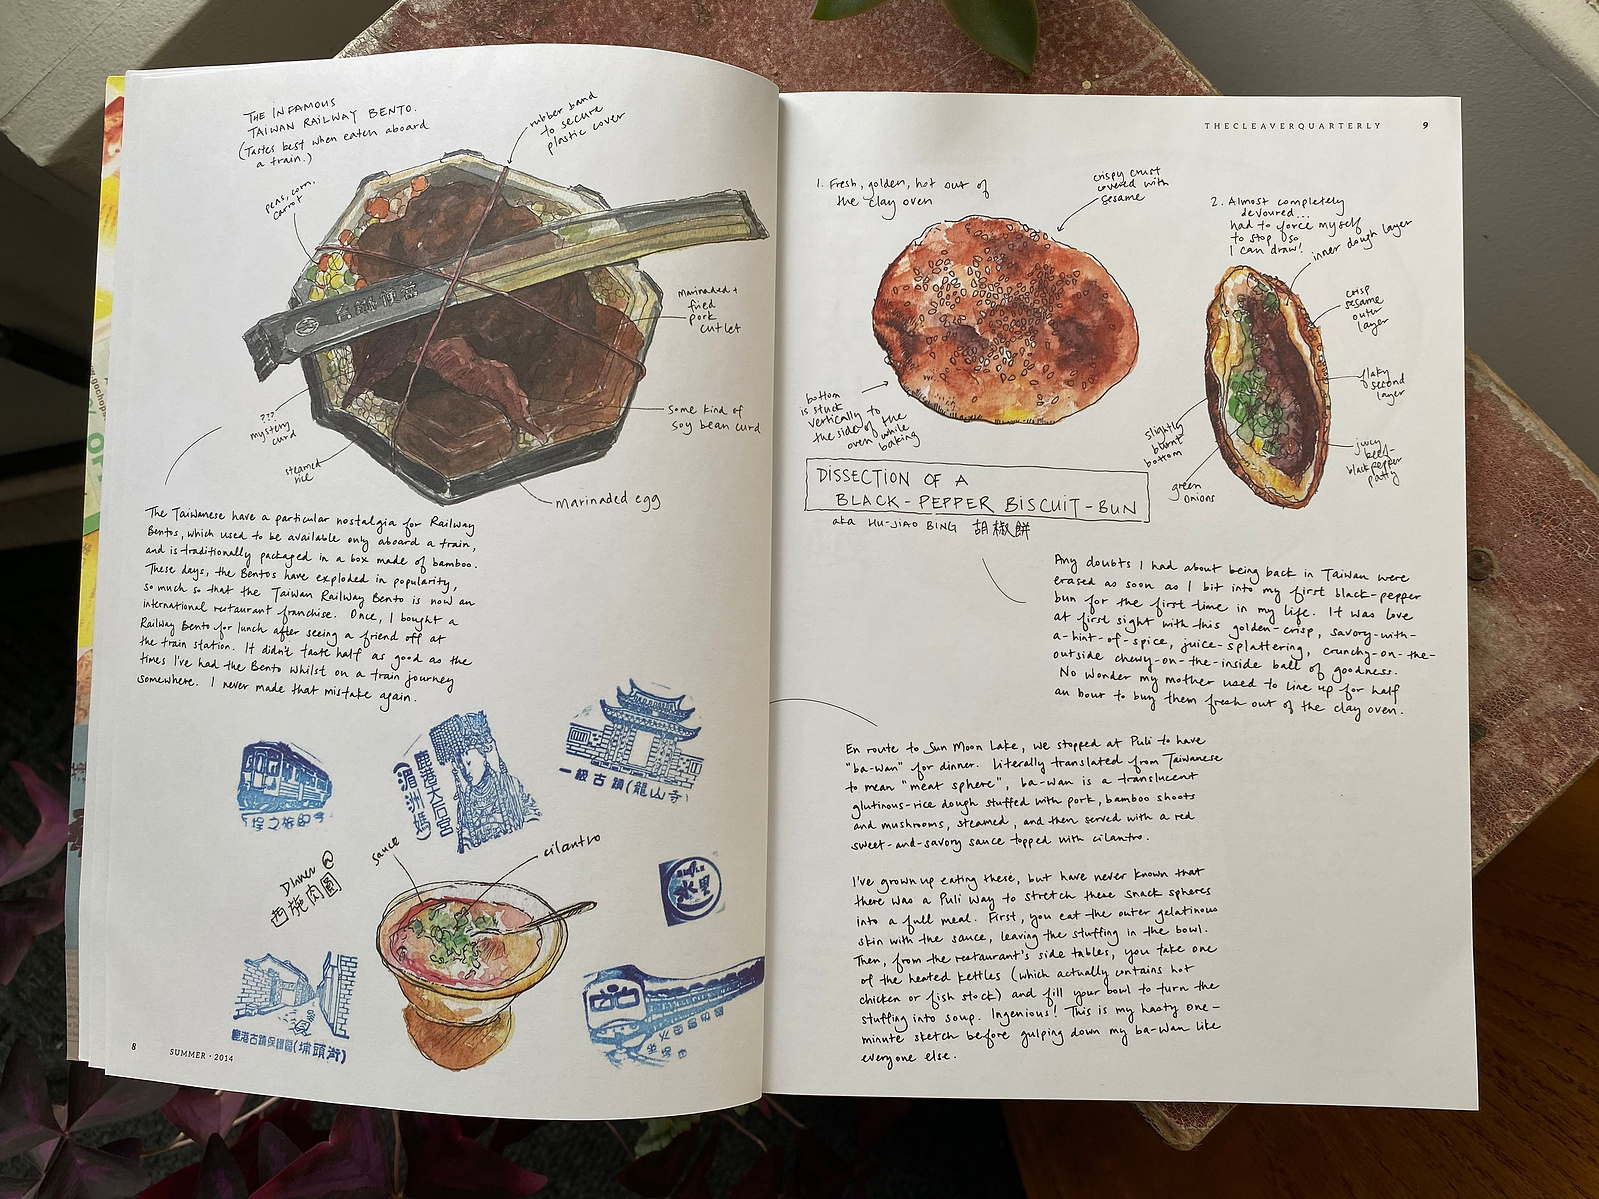 THE INFAMOUS
TAIWAN RAILWAY BENTO.
(Tastes best when eaten aboard
a train.)
rubber band
to secure
plastic cover
peas, corn,
carrot
台鐵便當
marinaded +
fried
pork
cutlet
???
mystery
curd
some kind of
soy bean curd
steamed
rice
marinaded egg
The Taiwanese have a particular nostalgia for Railway
Bentos, which used to be available only aboard a train,
and is traditionally packaged in a box made of bamboo.
These days, the Bentos have exploded in popularity,
so much so that the Taiwan Railway Bento is now an
international restaurant franchise. Once, I bought a
Railway Bento for lunch after seeing a friend off at
the train station. It didn't taste half as good as the
times I've had the Bento whilst on a train journey
somewhere. I never made that mistake again.
埕之旅
鹿港天后宮
(湄洲媽)
一級古蹟(龍山寺)
sauce
cilantro
Dinner @
西施肉圓
水里
鹿港古蹟保存區(埔頭街)
8
SUMMER · 2014
THECLEAVERQUARTERLY
9
1. Fresh, golden, hot out of
the clay oven
crispy crust
covered with
sesame
bottom
is stuck
vertically to
the side of the
oven while
baking
2. Almost completely
devoured...
had to force myself
to stop so
I can draw!
inner dough layer
crisp
sesame
outer
layer
flaky
second
layer
slightly
burnt
bottom
green
onions
juicy
beef-
black pepper
patty
DISSECTION OF A
BLACK-PEPPER BISCUIT-BUN
aka HU-JIAO BING 胡椒餅
Any doubts I had about being back in Taiwan were
erased as soon as I bit into my first black-pepper
bun for the first time in my life. It was love
at first sight with this golden-crisp, savory-with-
a-hint-of-spice, juice-splattering, crunchy-on-the-
outside chewy-on-the-inside ball of goodness.
No wonder my mother used to line up for half
an hour to buy them fresh out of the clay oven.
En route to Sun Moon Lake, we stopped at Puli to have
"ba-wan" for dinner. Literally translated from Taiwanese
to mean "meat sphere", ba-wan is a translucent
glutinous-rice dough stuffed with pork, bamboo shoots
and mushrooms, steamed, and then served with a red
sweet-and-savory sauce topped with cilantro.
I've grown up eating these, but have never known that
there was a Puli way to stretch these snack spheres
into a full meal. First, you eat the outer gelatinous
skin with the sauce, leaving the stuffing in the bowl.
Then, from the restaurant's side tables, you take one
of the heated kettles (which actually contains hot
chicken or fish stock) and fill your bowl to turn the
stuffing into soup. Ingenious! This is my hasty one-
minute sketch before gulping down my ba-wan like
everyone else.